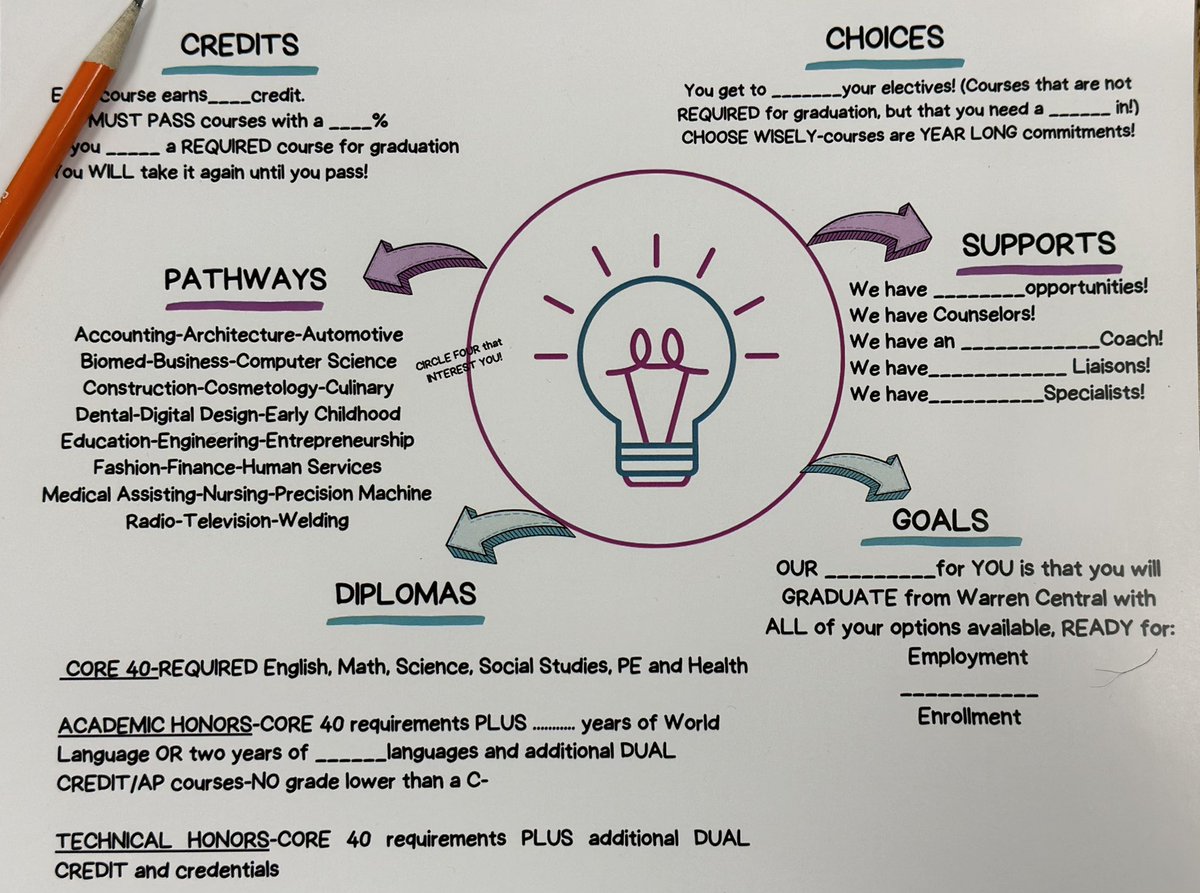 CREDITS
E course earns____credit.
MUST PASS courses with a ____%
you _____ a REQUIRED course for graduation
You WILL take it again until you pass!
CHOICES
You get to _______your electives! (Courses that are not
REQUIRED for graduation, but that you need a ______ in!)
CHOOSE WISELY-courses are YEAR LONG commitments!
PATHWAYS
Accounting-Architecture-Automotive
Biomed-Business-Computer Science
Construction-Cosmetology-Culinary
Dental-Digital Design-Early Childhood
Education-Engineering-Entrepreneurship
Fashion-Finance-Human Services
Medical Assisting-Nursing-Precision Machine
Radio-Television-Welding
CIRCLE FOUR that
INTEREST YOU!
SUPPORTS
We have ________opportunities!
We have Counselors!
We have an ____________Coach!
We have____________ Liaisons!
We have__________Specialists!
GOALS
OUR _________for YOU is that you will
GRADUATE from Warren Central with
ALL of your options available, READY for:
Employment
____________
Enrollment
DIPLOMAS
CORE 40-REQUIRED English, Math, Science, Social Studies, PE and Health
ACADEMIC HONORS-CORE 40 requirements PLUS ........... years of World
Language OR two years of ______languages and additional DUAL
CREDIT/AP courses-NO grade lower than a C-
TECHNICAL HONORS-CORE 40 requirements PLUS additional DUAL
CREDIT and credentials